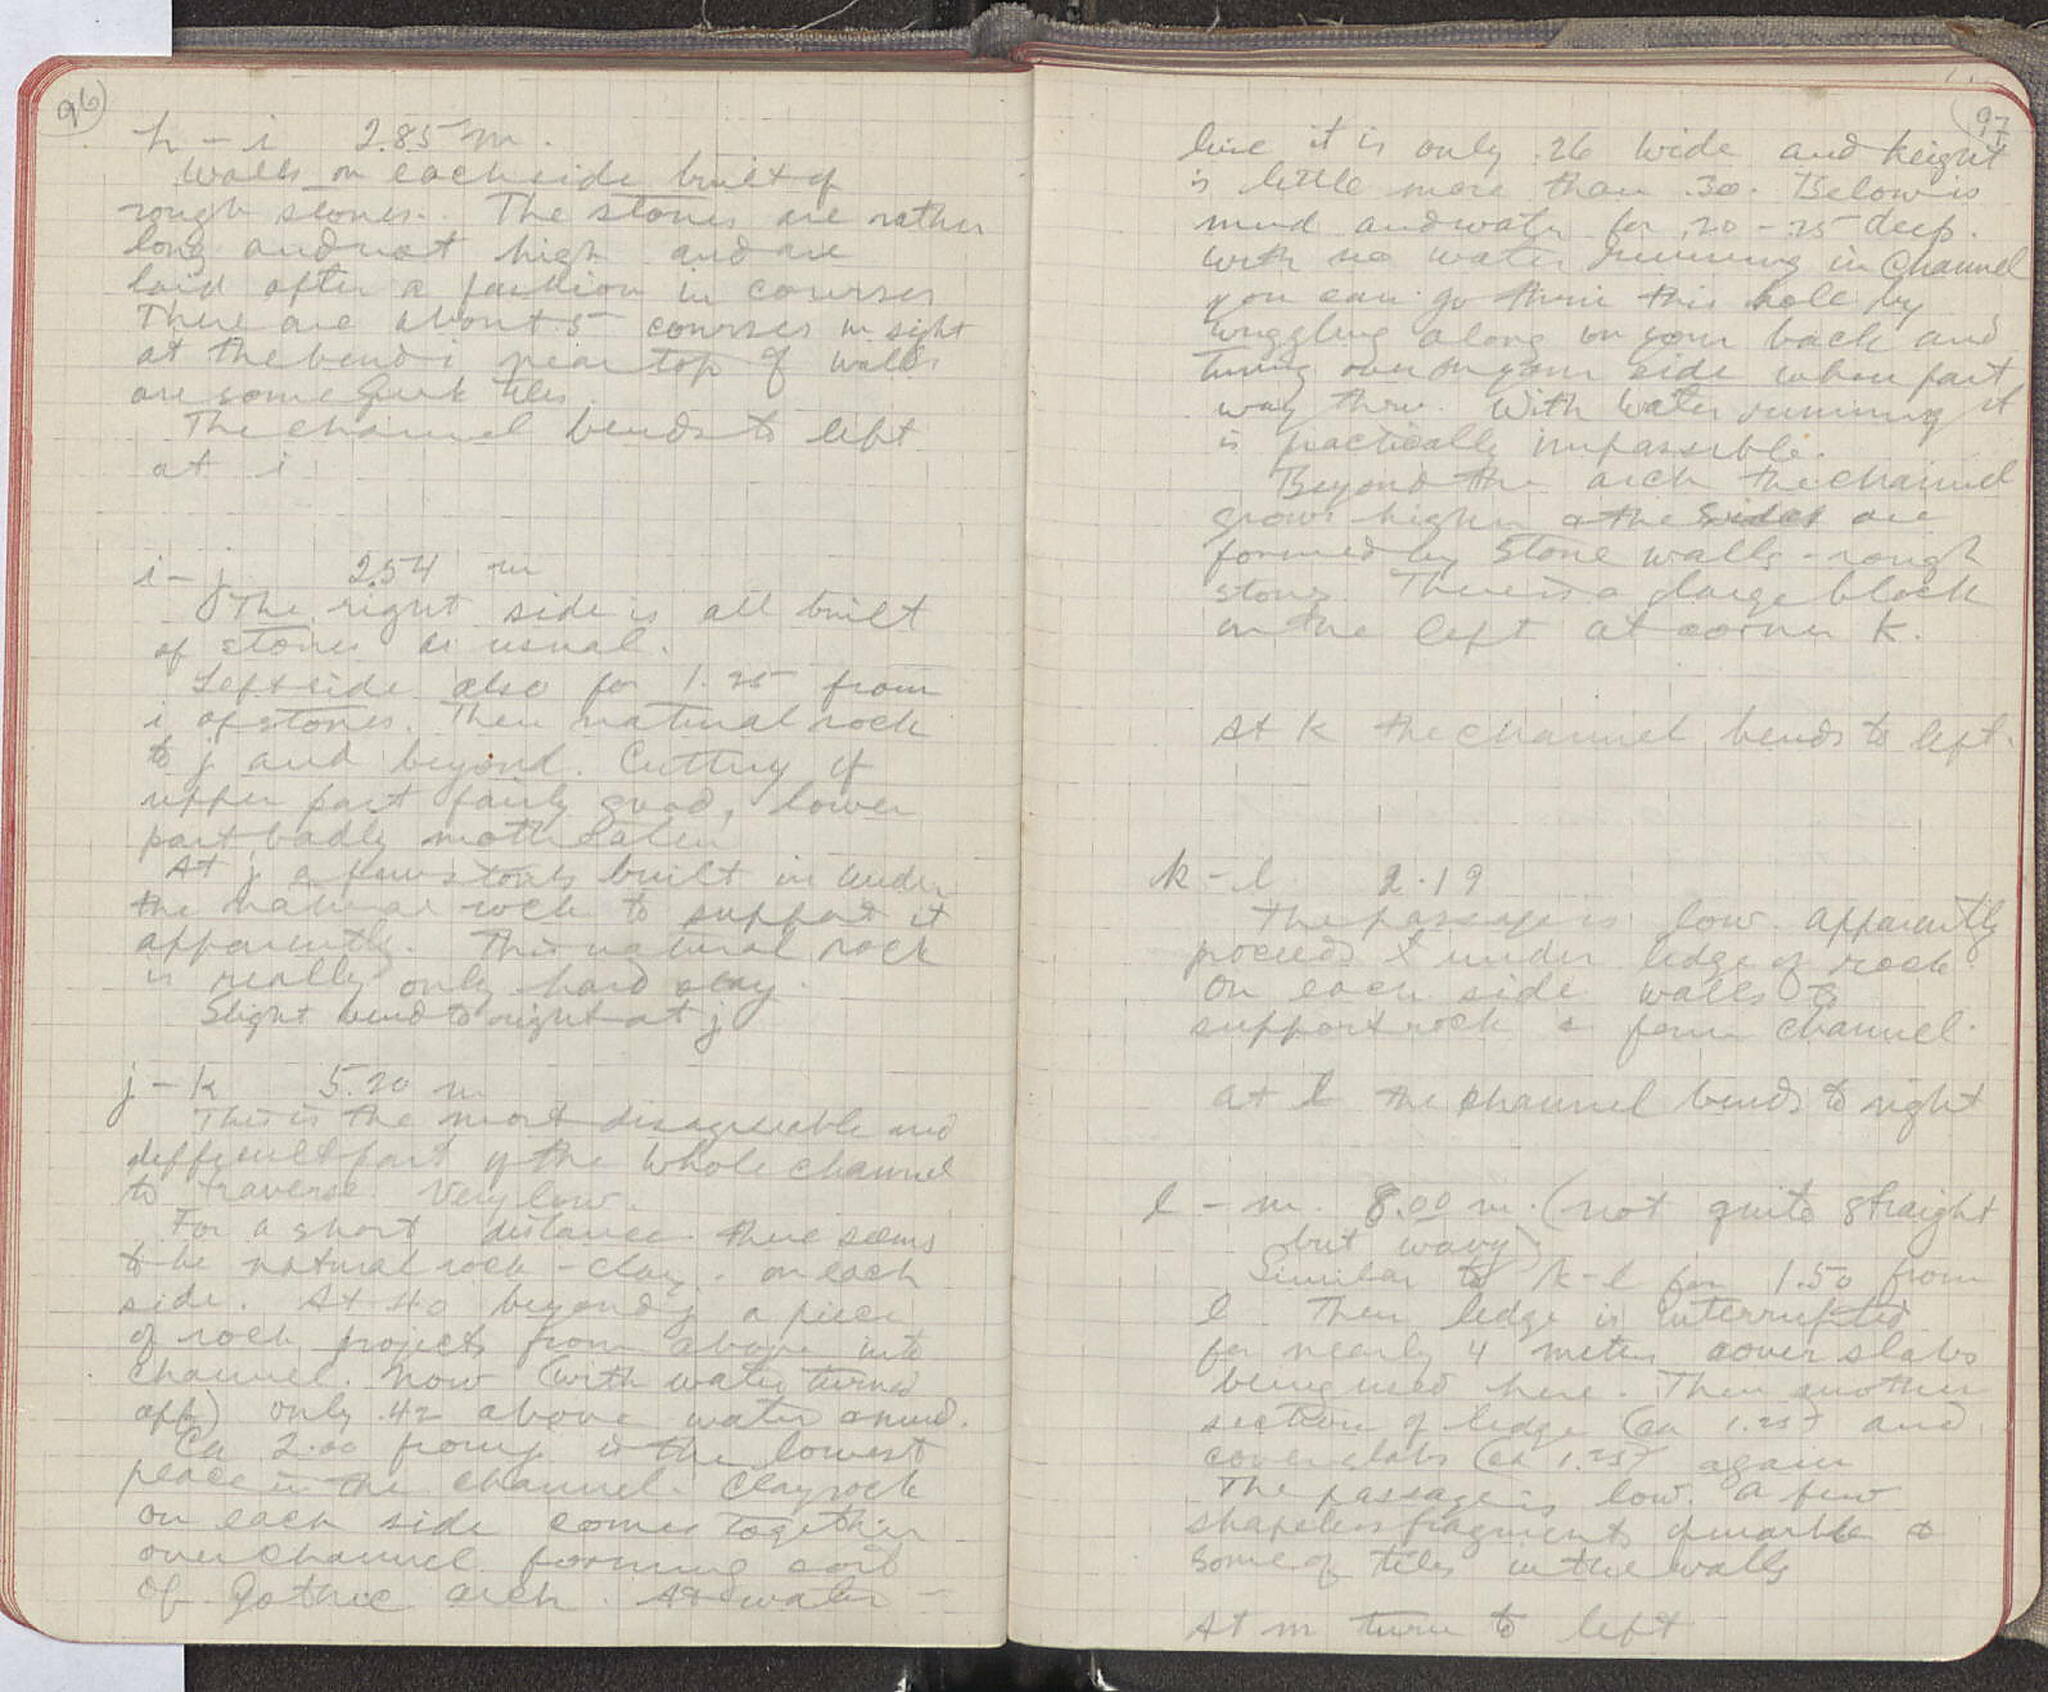 96
h – i 2.85 m.
Walls on each side built of
rough stones. The stones are rather
long and not high and are
laid after a fashion in courses
There are about 5 courses in sight
at the bend i near top of walls
are some Greek tiles.
The channel bends to left
at i
i – j 2.54 m
The right side is all built
of stones as usual.
Left side also for 1.25 from
i of stones. Then natural rock
to j and beyond. Cutting of
upper part fairly good, lower
part badly moth eaten
At j a few stones built in under
the natural rock to support it
apparently. This natural rock
is really only hard clay.
Slight bend to right at j
j – k 5.20 m
This is the most disagreeable and
difficult part of the whole channel
to traverse. Very low.
For a short distance there seems
to be natural rock – clay – on each
side. At .40 beyond j a piece
of rock projects from above into
channel. Now (with water turned
off) only .42 above water & mud.
Ca 2.00 from j is the lowest
place in the channel. Clay rock
on each side comes together
over channel forming sort
of Gothic arch. At water –
97
line it is only .26 wide and height
is little more than .30. Below is
mud and water for .20 – .25 deep.
With no water running in channel
you can go thru this hole by
wriggling along on your back and
turning over on your side when part
way thru. With water running it
is practically impassible.
Beyond the arch the channel
grows higher & the sides are
formed by stone walls – rough
stones. There is a large block
on the left at corner k.
At k the channel bends to left.
k – l 2.19
The passage is low. Apparently
proceeds under ledge of rock
On each side walls to
support rock & form channel.
At l the channel bends to right
l – m. 8.00 m. (not quite straight
but wavy)
Similar to k–l for 1.50 from
l. Then ledge is interrupted
for nearly 4 meters cover slabs
being used here. Then another
section of ledge (ca 1.25) and
cover slabs (ca 1.25) again
The passage is low. A few
shapeless fragments of marble &
some of tiles in the walls
At m turn to left